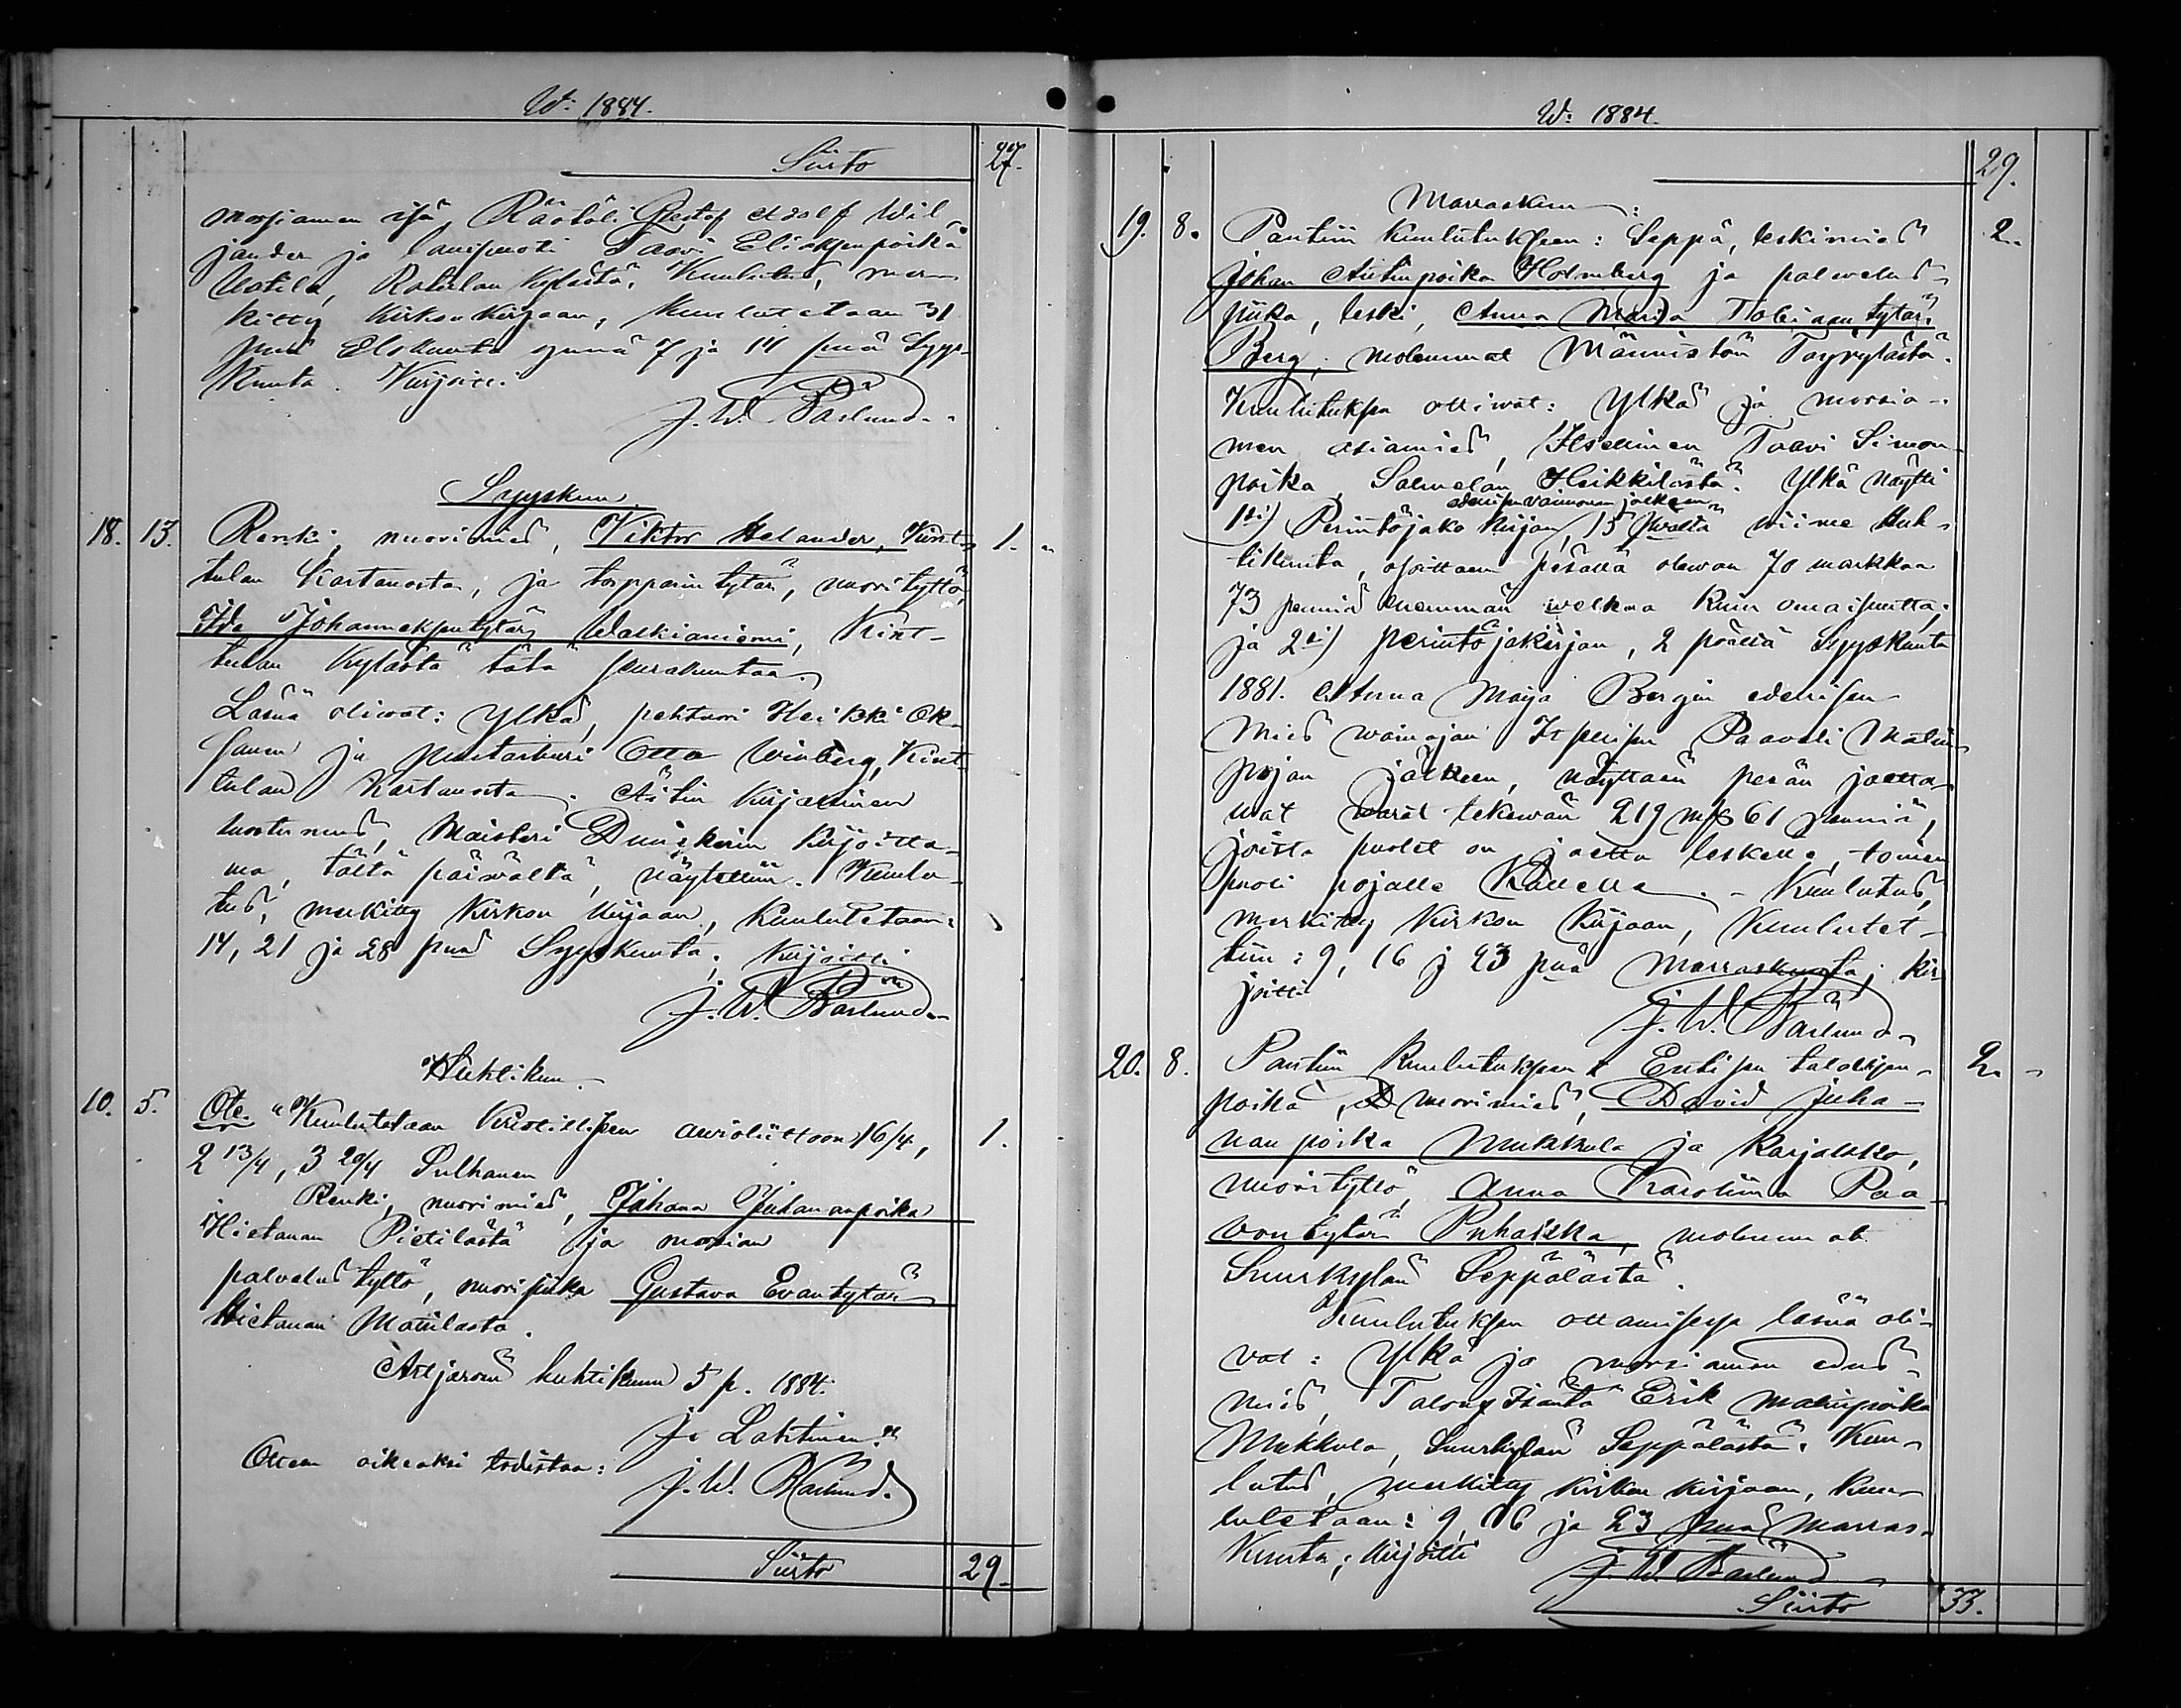 W: 1884.
Siirto 27.
morsiamen isä, Räätäli Gustaf Adolf Wil-
jander ja lautamies Taavi Eliaksenpoika
Uotila, Ratulan kylästä. Kuulutus, mer-
kitty kirkonkirjaan, kuulutetaan 31
pnä Elokuuta ynnä 7 ja 14 pnä Syys-
kuuta. Kirjoitti
J. W. Barlund.
Syyskuu.
18. 13. Renki, nuorimies, Viktor Helander, Kint- 1. „
tulan Kartanosta, ja torpparin tytär, nuori tyttö,
Ida Johanneksentytär Walkianiemi, Kint-
tulan kylästä tätä seurakuntaa.
Läsnä olivat: Ylkä, pehtoori Heikki Ok-
sanen ja puutarhuri Otto Winberg, Kint-
tulan Kartanosta. Äitin kirjallinen
suostumus, Maisteri Dunckerin kirjoitta-
ma, tältä päivältä, näytettiin. Kuulu-
tus, merkitty kirkon kirjaan, kuulutetaan:
14, 21 ja 28 pnä Syyskuuta; Kirjoitti
J. W. Barlund
Huhtikuu.
10. 5. Ote. "Kuulutetaan kristilliseen avioliittoon 1 6/4, 1.
2 13/4, 3 20/4 Sulhanen
Renki, nuorimies, Juhana Juhananpoika
Hietanan Pietilästä ja morsian
palvelustyttö, nuori piika Gustava Evantytär
Hietanan Mattilasta.
Artjärvi huhtikuun 5 p. 1884.
J. Lahtinen."
Otteen oikeaksi todistaa:
J. W. Barlund.
Siirto 29.
W: 1884.
29.
Marraskuu:
19. 8. Pantiin kuulutukseen: Seppä, leskimies 2.
Johan Antinpoika Holmberg ja palvelus-
piika, leski, Anna Maria Tobiaantytär
Berg, molemmat Männistön Täyrylästä.
Kuulutuksen ottivat: Ylkä ja morsia-
men asiamies, Itsellinen Taavi Simon-
poika, Salmelan Heikkilästä. Ylkä näytti
edellisen vaimonsa jälkeen
1ksi) Perintöjako kirjan, 15 pvältä viime Huh-
tikuuta, osoittaen pesällä olevan 70 markkaa
73 penniä enemmän welkaa kuin omaisuutta;
ja 2ksi) perintöjakirjan, 2 päältä Syyskuuta
1881. Anna Maija Bergin edellisen
mies wainajan Itsellisen Paavali Matin
pojan jälkeen, näyttäen perän jaetta-
wat warat tekewän 219 mk 61 penniä,
joista puolet on jaettu leskelle, toinen
puoli pojalle Kallelle. - Kuulutus,
merkitty kirkon kirjaan, kuulutet-
tiin: 9, 16 j 23 pnä Marraskuuta; kir-
joitti
J. W. Barlund
20. 8. Pantiin kuulutukseen Entisen talollisen- 2. „
poika, nuorimies, David Juha-
nanpoika Mukkula ja karjakko,
nuorityttö, Anna Karoliina Paa-
vontytär Puhakka, molemmat
Suurkylän Seppälästä.
Kuulutuksen ottamisessa läsnä oli-
vat: Ylkä ja morsiamen edus-
mies, Talon isäntä Erik Matinpoika
Mukkula, Suurkylän Seppälästä. Kuu-
lutus, merkitty kirkon kirjaan, kuu-
lutetaan: 9, 16 ja 23 pnä Marras-
kuuta; kirjoitti
J. W. Barlund
Siirto 33.